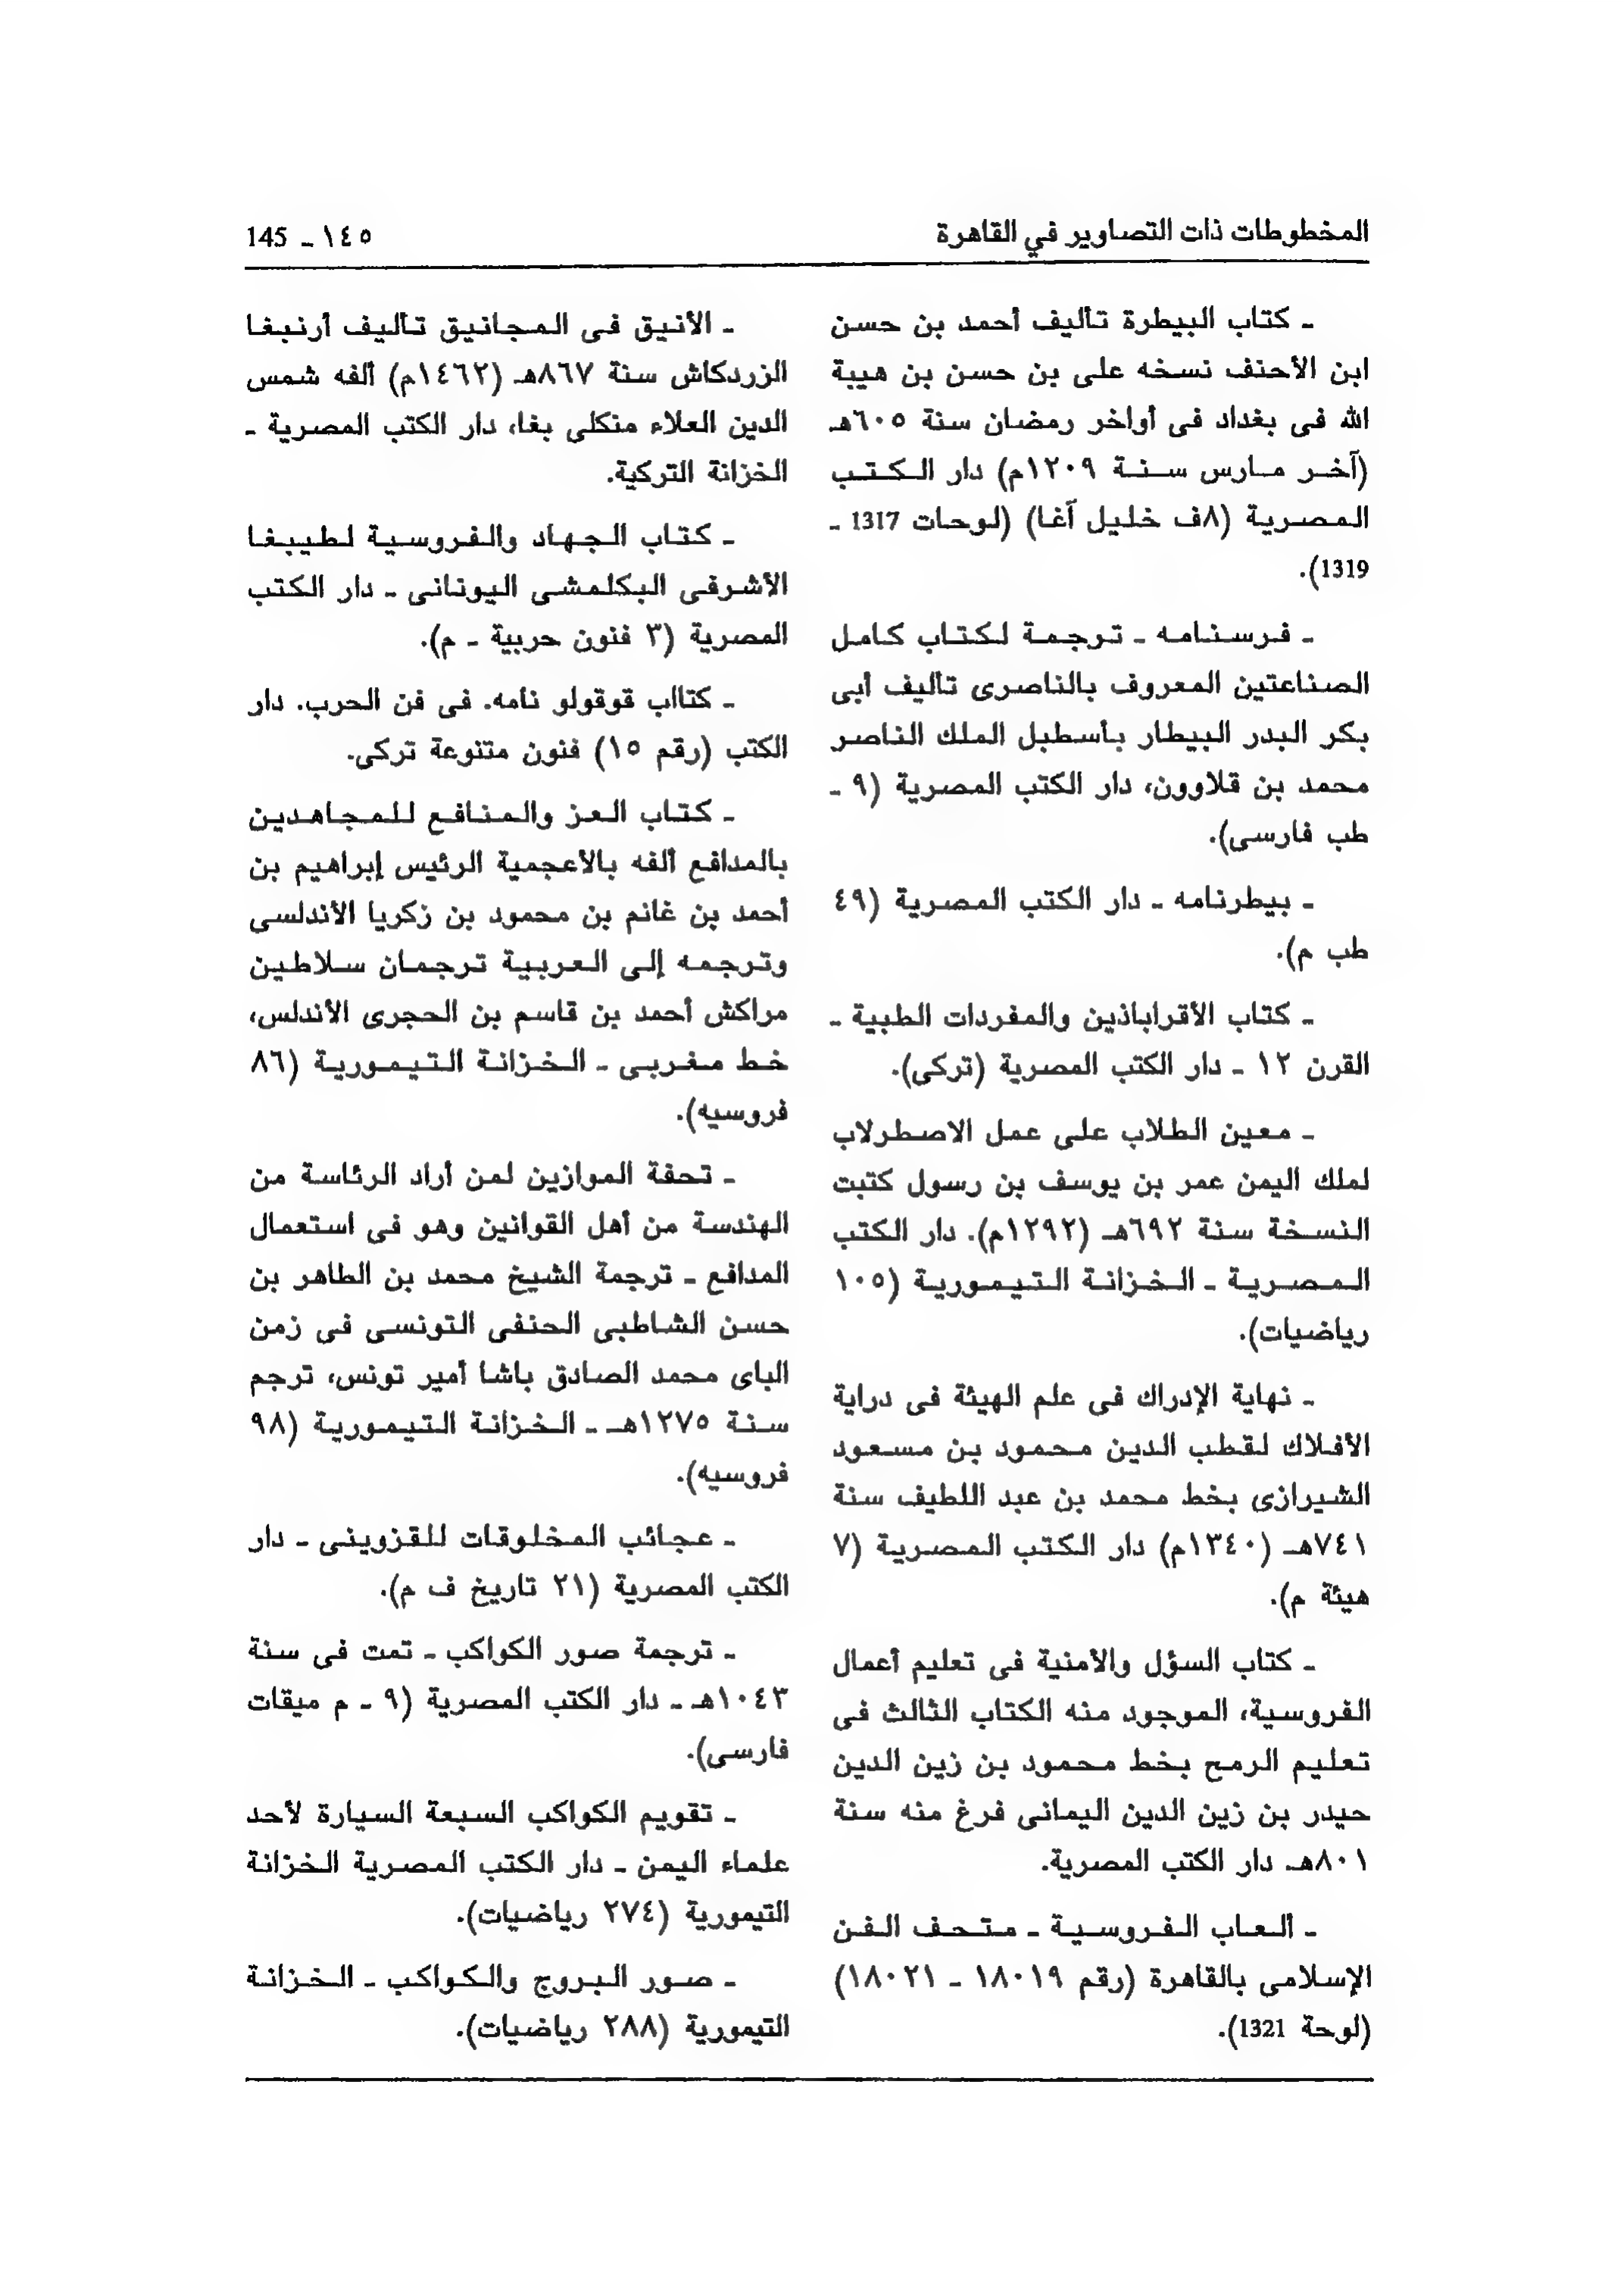 المخطوطات ذات التصاوير في القاهرة
١٤٥ ـ 145
ـ كتاب البيطرة تأليف أحمد بن حسن
ابن الأحنف نسخه على بن حسن بن هيبة
الله فى بغداد فى أواخر رمضان سنة ٦٠٥هـ
(آخر مارس سنة ١٢٠٩م) دار الكتب
المصرية (٨ف خليل آغا) (لوحات 1317 ـ
1319).
ـ فرسنامه ـ ترجمة لكتاب كامل
الصناعتين المعروف بالناصرى تأليف أبى
بكر البدر البيطار بأسطبل الملك الناصر
محمد بن قلاوون، دار الكتب المصرية (٩ ـ
طب فارسى).
ـ بيطرنامه ـ دار الكتب المصرية (٤٩
طب م).
ـ كتاب الأقراباذين والمفردات الطبية ـ
القرن ١٢ ـ دار الكتب المصرية (تركى).
ـ معين الطلاب على عمل الاصطرلاب
لملك اليمن عمر بن يوسف بن رسول كتبت
النسخة سنة ٦٩٢هـ (١٢٩٢م). دار الكتب
المصرية ـ الخزانة التيمورية (١٠٥
رياضيات).
ـ نهاية الإدراك فى علم الهيئة فى دراية
الأفلاك لقطب الدين محمود بن مسعود
الشيرازى بخط محمد بن عبد اللطيف سنة
٧٤١هـ (١٣٤٠م) دار الكتب المصرية (٧
هيئة م).
ـ كتاب السؤل والأمنية فى تعليم أعمال
الفروسية، الموجود منه الكتاب الثالث فى
تعليم الرمح بخط محمود بن زين الدين
حيدر بن زين الدين اليمانى فرغ منه سنة
٨٠١هـ. دار الكتب المصرية.
ـ ألعاب الفروسية ـ متحف الفن
الإسلامى بالقاهرة (رقم ١٨٠١٩ ـ ١٨٠٢١)
(لوحة 1321).
ـ الأنيق فى المجانيق تأليف أرنبغا
الزردكاش سنة ٨٦٧هـ (١٤٦٢م) ألفه شمس
الدين العلاء منكلى بغا، دار الكتب المصرية ـ
الخزانة التركية.
ـ كتاب الجهاد والفروسية لطيبغا
الأشرفى البكلمشى اليونانى ـ دار الكتب
المصرية (٣ فنون حربية ـ م).
ـ كتااب قوقولو نامه. فى فن الحرب. دار
الكتب (رقم ١٥) فنون متنوعة تركى.
ـ كتاب العز والمنافع للمجاهدين
بالمدافع ألفه بالأعجمية الرئيس إبراهيم بن
أحمد بن غانم بن محمود بن زكريا الأندلسى
وترجمه إلى العربية ترجمان سلاطين
مراكش أحمد بن قاسم بن الحجرى الأندلس،
خط مغربى ـ الخزانة التيمورية (٨٦
فروسيه).
ـ تحفة الموازين لمن أراد الرئاسة من
الهندسة من أهل القوانين وهو فى استعمال
المدافع ـ ترجمة الشيخ محمد بن الطاهر بن
حسن الشاطبى الحنفى التونسى فى زمن
الباى محمد الصادق باشا أمير تونس، ترجم
سنة ١٢٧٥هـ ـ الخزانة التيمورية (٩٨
فروسيه).
ـ عجائب المخلوقات للقزوينى ـ دار
الكتب المصرية (٢١ تاريخ ف م).
ـ ترجمة صور الكواكب ـ تمت فى سنة
١٠٤٣هـ ـ دار الكتب المصرية (٩ ـ م ميقات
فارسى).
ـ تقويم الكواكب السبعة السيارة لأحد
علماء اليمن ـ دار الكتب المصرية الخزانة
التيمورية (٢٧٤ رياضيات).
ـ صور البروج والكواكب ـ الخزانة
التيمورية (٢٨٨ رياضيات).